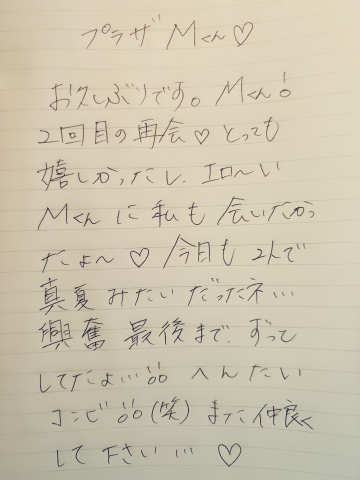 プラザ Mくん♡
お久しぶりです。Mくん!
2回目の再会♡とっても
嬉しかったし、エロ〜い
Mくんに私も会いたかっ
たよ〜♡今日も2人で
真夏みたいだったネ…
興奮最後まで、ずって
してたよ…!!へんたい
コンビ!!(笑)また仲良く
して下さい…♡